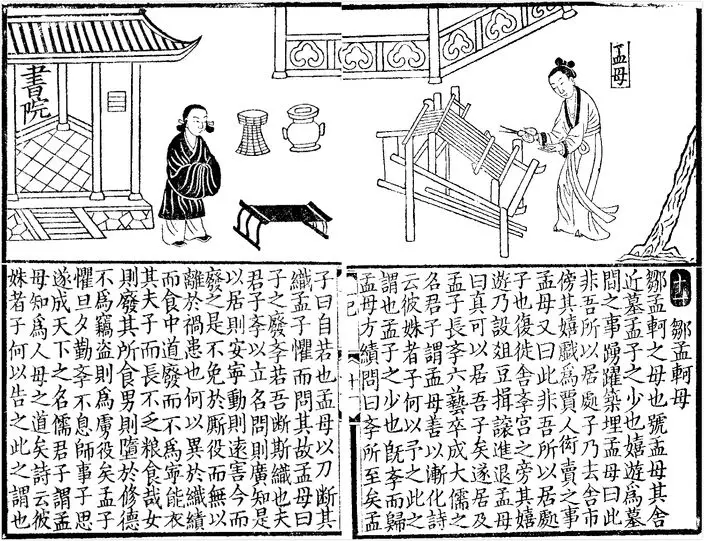 孟母
書院
鄒孟軻母
鄒孟軻之母也號孟母其舍
近墓孟子之少也嬉遊爲墓
間之事踴躍築埋孟母曰此
非吾所以居處子乃去舍市
傍其嬉戲爲賈人衒賣之事
孟母又曰此非吾所以居處
子也復徙舍斈宮之旁其嬉
遊乃設俎豆揖讓進退孟母
曰真可以居吾子矣遂居及
孟子長斈六藝卒成大儒之
名君子謂孟母善以漸化詩
云彼姝者子何以予之此之
謂也孟子之少也既斈而歸
孟母方績問曰斈所至矣孟
子曰自若也孟母以刀斷其
織孟子懼而問其故孟母曰
子之廢斈若吾斷斯織也夫
君子斈以立名問則廣知是
以居則安寧動則遠害今而
廢之是不免於厮役而無以
離於禍患也何以異於織績
而食中道廢而不爲寧能衣
其夫子而長不乏粮食哉女
則廢其所食男則墮於修德
不爲竊盜則爲虜役矣孟子
懼旦夕勤斈不息師事子思
遂成天下之名儒君子謂孟
母知爲人母之道矣詩云彼
姝者子何以告之此之謂也